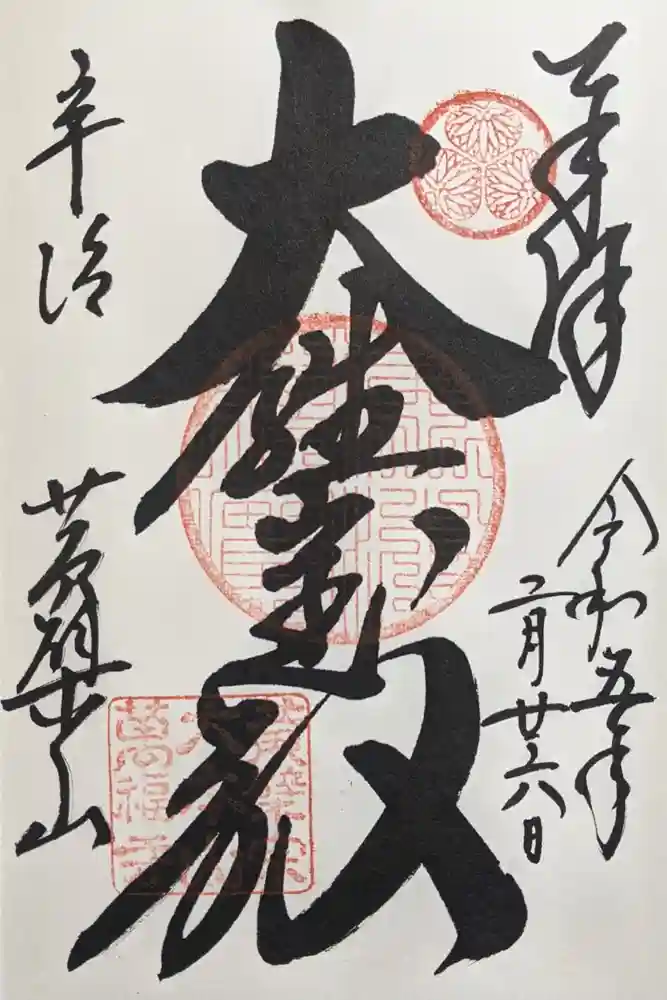 奉拝
令和五年
二月廿六日
大雄宝殿
宇治
黄檗山